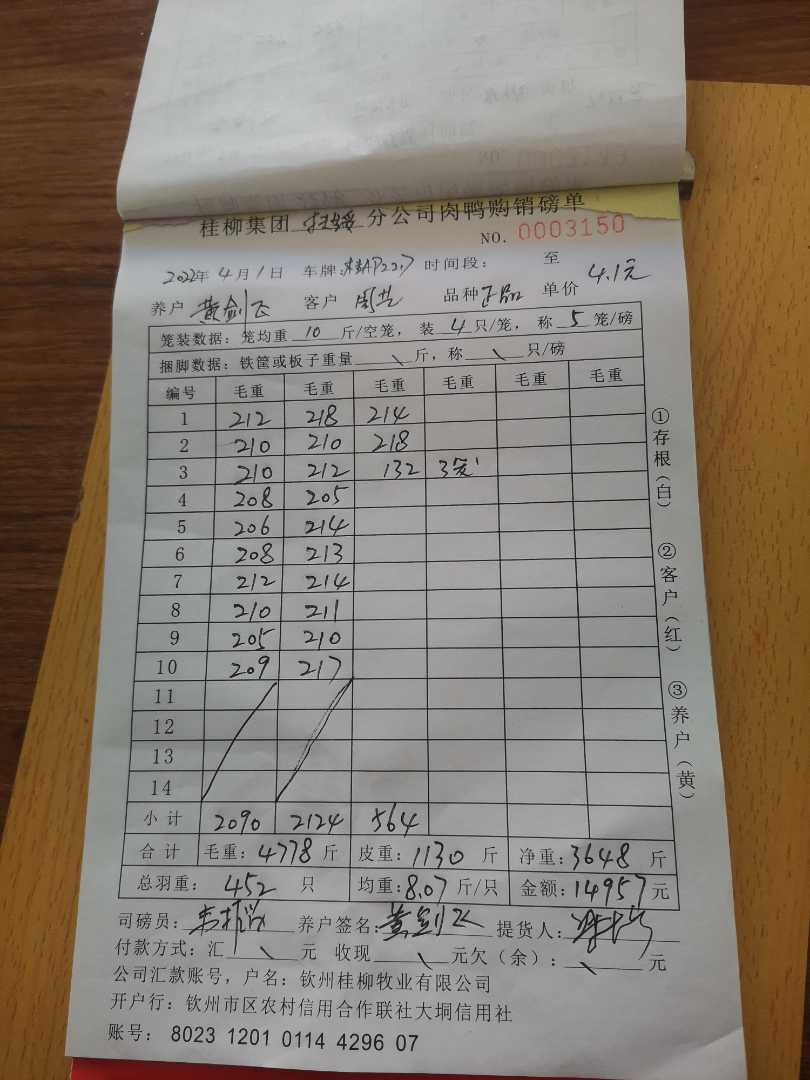 桂柳集团 分公司肉鸭购销磅单
NO. 0003150
2022年 4月 1日 车牌: 时间段: 至
养户 黄剑飞 客户 品种 正品 单价 4.1元
笼装数据: 笼均重 10 斤/空笼, 装 4 只/笼, 称 5 笼/磅
捆脚数据: 铁筐或板子重量 \ 斤, 称 \ 只/磅
编号 毛重 毛重 毛重 毛重 毛重 毛重
1 212 218 214
2 210 210 218
3 210 212 132 3笼
4 208 205
5 206 214
6 208 213
7 212 214
8 210 211
9 205 210
10 209 217
11
12
13
14
小计 2090 2124 564
合计 毛重: 4778 斤 皮重: 1130 斤 净重: 3648 斤
总羽重: 452 只 均重: 8.07 斤/只 金额: 14957 元
司磅员: 养户签名: 黄剑飞 提货人:
付款方式: 汇 \ 元 收现 \ 元欠(余): \ 元
公司汇款账号, 户名: 钦州桂柳牧业有限公司
开户行: 钦州市区农村信用合作联社大垌信用社
账号: 8023 1201 0114 4296 07
①存根(白)
②客户(红)
③养户(黄)